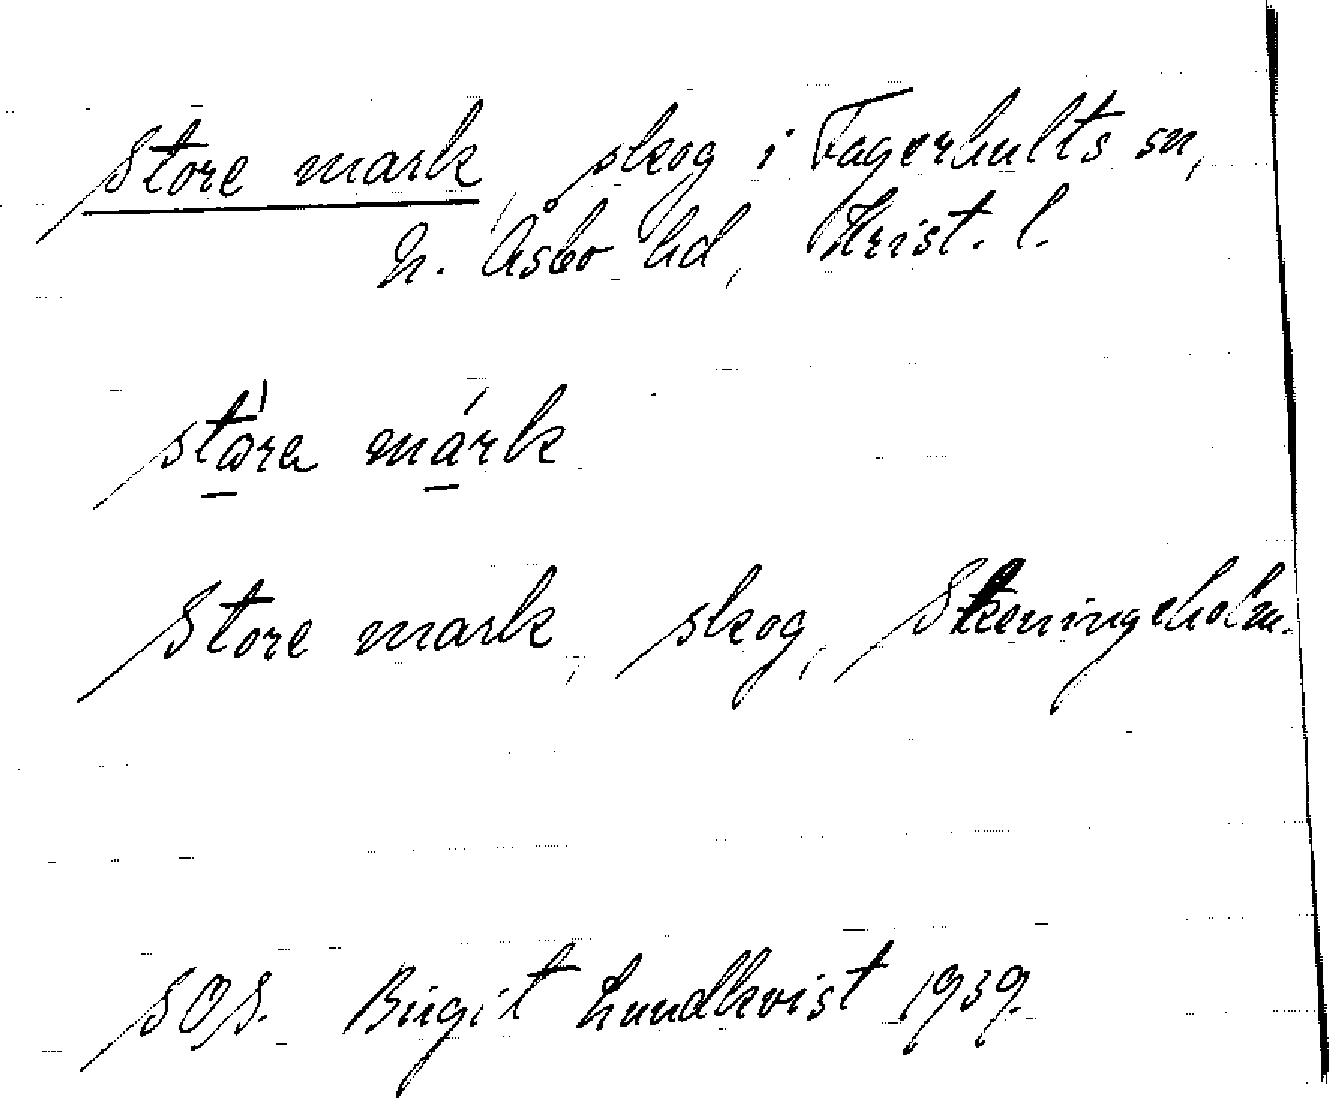 Store mark, skog i Fagerhults sn,
N. Åsbo hd, Krist. l.
stora mark
Store mark, skog, Skeningeholm.
SOS. Birgit Lundkvist 1939.